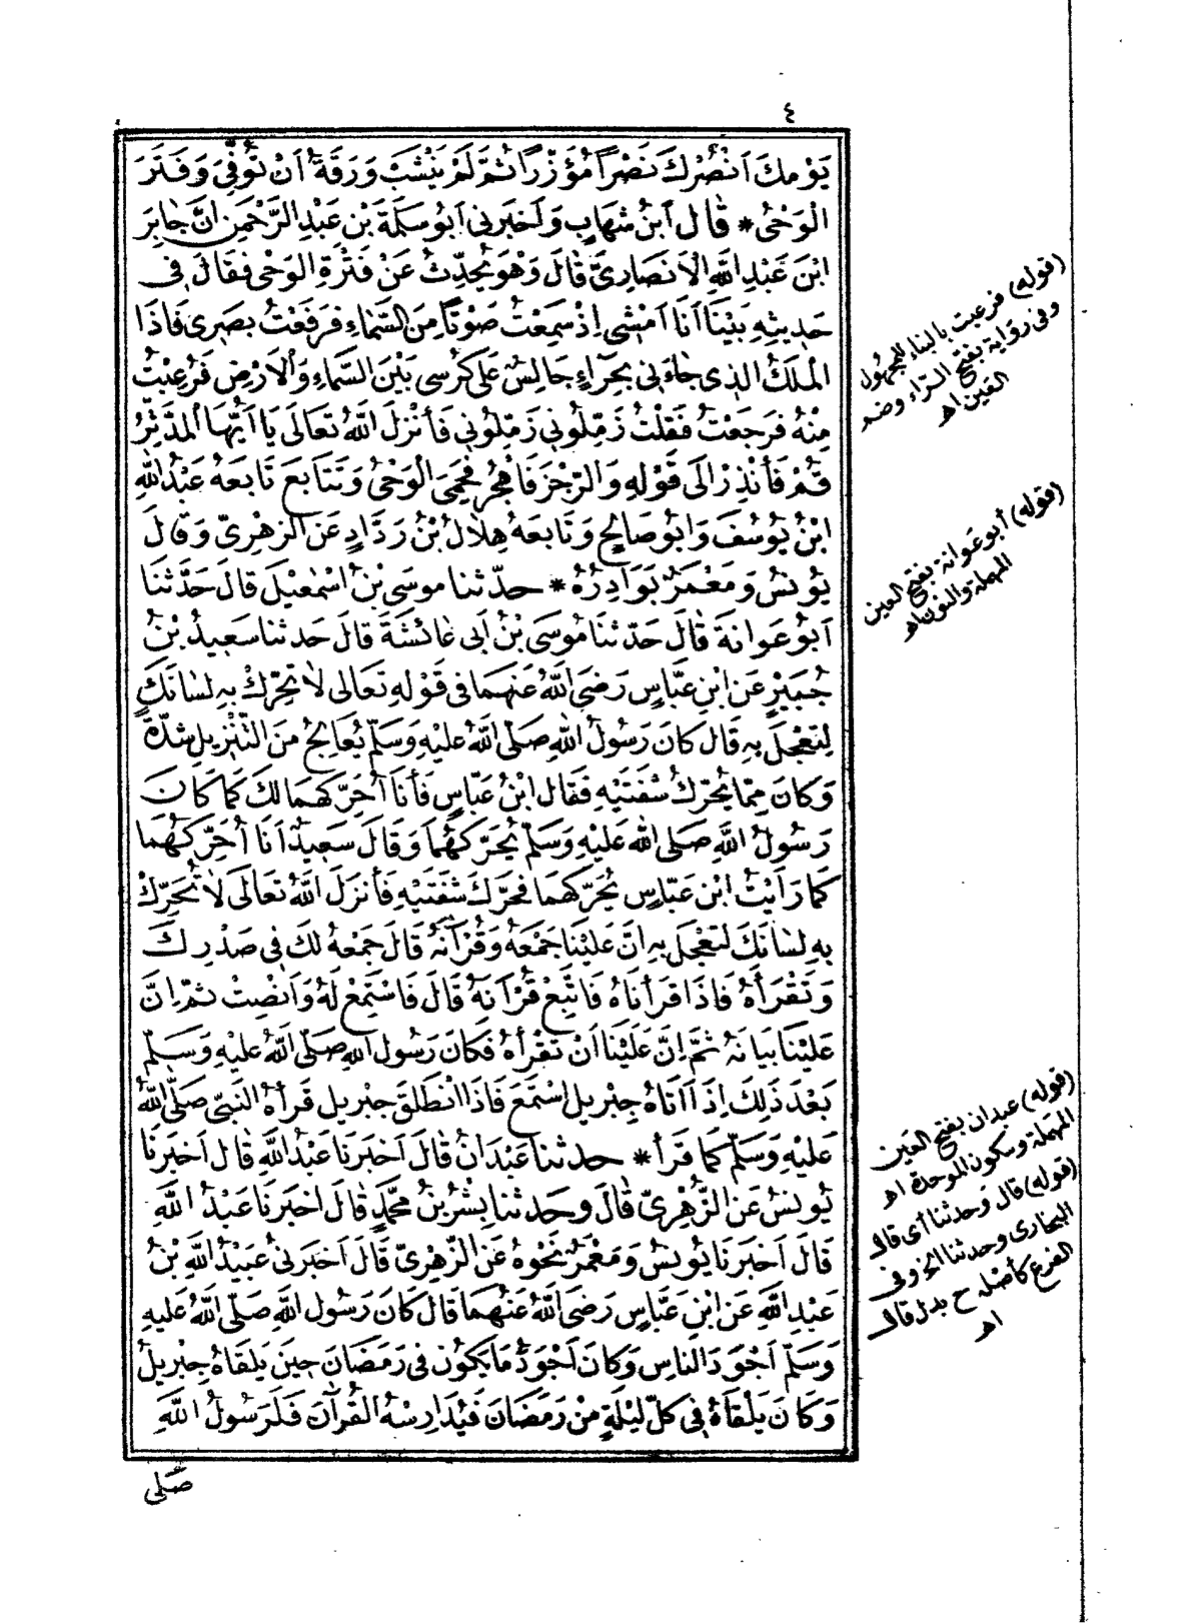 ٤
يَوْمكَ اَنْصُرْكَ نَصْراً مُؤَزَّراً ثُمَّ لَمْ يَنْشَبْ وَرَقَةُ اَنْ تُوُفِّىَ وَفَتَرَ
الْوَحْىُ * قَالَ ابْنُ شِهَابٍ وَاَخْبَرَنِى اَبُو سَلَمَةَ بْنِ عَبْدِ الرَّحْمٰنِ اَنَّ جَابِرَ
ابْنَ عَبْدِ اللَّهِ الْاَنْصَارِىَّ قَالَ وَهْوَ يُحَدِّثُ عَنْ فَتْرَةِ الْوَحْىِ فَقَالَ فِى
حَدِيثِهِ بَيْنَا اَنَا اَمْشِى اِذْ سَمِعْتُ صَوْتًا مِنَ السَّمَاءِ فَرَفَعْتُ بَصَرِى فَاذَا
الْمَلَكُ الذِى جَاءَنِى بِحِرَاءٍ جَالِسٌ عَلَى كُرْسِى بَيْنَ السَّمَاءِ وَالاَرْضِ فَرُعِبْتُ
مِنْهُ فَرَجَعْتُ فَقَلْتُ زَمِّلُونِى زَمِّلُونِى فَأَنْزَلَ اللَّهُ تَعَالَى يَا اَيُّهَا الْمُدَّثِّرُ
قُمْ فَأَنْذِرْ اِلَى قَوْلِهِ وَالرِّجْزَ فَاهْجُرْ فَحَمِىَ الْوَحْىُ وَتَتَابَعَ تَابَعَهُ عَبْدُ اللَّهِ
ابْنُ يُوسُفَ وَابُو صَالِحٍ وَتَابَعَهُ هِلَالُ بْنُ رَدَّادٍ عَنِ الزُّهْرِىِّ وَقَالَ
يُونُسُ وَمَعْمَرٌ بَوَادِرُهُ * حدّثنا موسَى بْنُ اسْمٰعِيْلَ قَالَ حَدَّثَنَا
اَبُو عَوَانَةَ قَالَ حَدّثنَا مُوسَى بْنُ اَبِى عَائِشَةَ قَالَ حَدثنا سَعِيدُ بْنُ
جُبَيْرٍ عَنِ ابْنِ عَبَّاسٍ رَضِىَ اللَّهُ عَنْهمَا فِى قَوْلِهِ تَعَالَى لَا تُحَرِّكْ بِهِ لِسَانَكَ
لِتَعْجَلَ بِهِ قَالَ كَانَ رَسُولُ اللَّهِ صَلَّى اللَّهُ عَلَيْهِ وَسَلَّم يُعَالِجُ مِنَ التَّنْزِيلِ شِدَّةً
وَكَانَ مِمَّا يُحَرِّكُ شَفَتَيْهِ فَقَالَ ابْنُ عَبَّاسٍ فَأَنَا اُحَرِّكهمَا لَكَ كَمَا كَانَ
رَسُولُ اللَّهِ صَلَى اللَّه عَلَيْهِ وَسَلّمَ يُحَرِّكهُمَا وَقَالَ سَعِيدٌ اَنَا اُحَرِّكهُمَا
كَمَا رَاَيْتُ ابْنَ عَبّاسٍ يُحَرِّكهمَا فَحَرَّكَ شَفَتَيْهِ فَأَنزَلَ اللَّهُ تَعَالَى لَا تُحَرِّكْ
بِهِ لِسَانَكَ لِتَعْجَلَ بِهِ اِنَّ عَلَيْنَا جَمْعَهُ وَقُرْآنَهُ قَالَ جَمْعهُ لَكَ فِى صَدْرِكَ
وَتَقْرَأَهُ فَاذَا قَرَأْنَاهُ فَاتَّبِعْ قُرْآنَهُ قَالَ فَاسْتَمِعْ لَهُ وَاَنْصِتْ ثمّ اِنَّ
عَلَيْنَا بَيَانَهُ ثُمَّ اِنَّ عَلَيْنَا اَنْ تَقْرَأَهُ فَكَانَ رَسُولُ اللَّهِ صَلّى اللَّهُ عَلَيْهِ وَسَلَّمَ
بَعْدَ ذَلِكَ اِذَا اَتَاهُ جِبْرِيلُ اسْتَمَعَ فَاذَا انْطَلَقَ جبْرِيلُ قَرَأَهُ النَّبِىّ صَلّى اللَّهُ
عَلَيْهِ وَسَلَّم كَمَا قَرَأَ * حدثنا عَبْدَانُ قَالَ اَخْبَرَنَا عَبْدُ اللَّهِ قَالَ اَخْبَرَنَا
يُونُسُ عَنِ الزُّهْرِىِّ قَالَ وحَدثنا بِشْرُ بْنُ مُحَمَّدٍ قَالَ اَخْبَرَنَا عَبْدُ اللَّهِ
قَالَ اَخْبَرَنَا يُونُسُ وَمَعْمَرٌ نَحْوهُ عَنِ الزُّهْرِىِّ قَالَ اَخْبَرَنِى عُبَيْدُ اللَّهِ بْنُ
عَبْدِ اللَّهِ عَنِ ابْنِ عَبَّاسٍ رَضِىَ اللَّهُ عَنْهُمَا قَالَ كَانَ رَسُولُ اللَّهِ صَلّى اللَّهُ عَلَيهِ
وَسَلّم اَجْوَدَ الناسِ وَكَانَ اَجْوَدُ مَا يَكُون فِى رَمَضَانَ حِينَ يَلقَاهُ جِبْرِيلُ
وَكَانَ يَلْقَاهُ فِى كلّ لَيْلَةٍ مِنْ رَمَضَانَ فَيُدَارِسُهُ القُرآنَ فَلَرَسُولُ اللَّهِ
صَلّى
(قوله) فرعبت بالبناء للمجهول
وفى رواية بفتح الرّاء وضم
العين اه
(قوله) أبوعوانة بفتح العين
المهملة والنون اه
(قوله) عبدان بفتح العين
المهملة وسكون الموحدة اه
(قوله) قال وحدثنا أى قال
البخارى وحدثنا الخ وفى
الفرع كأصله ح بدل قال
اه